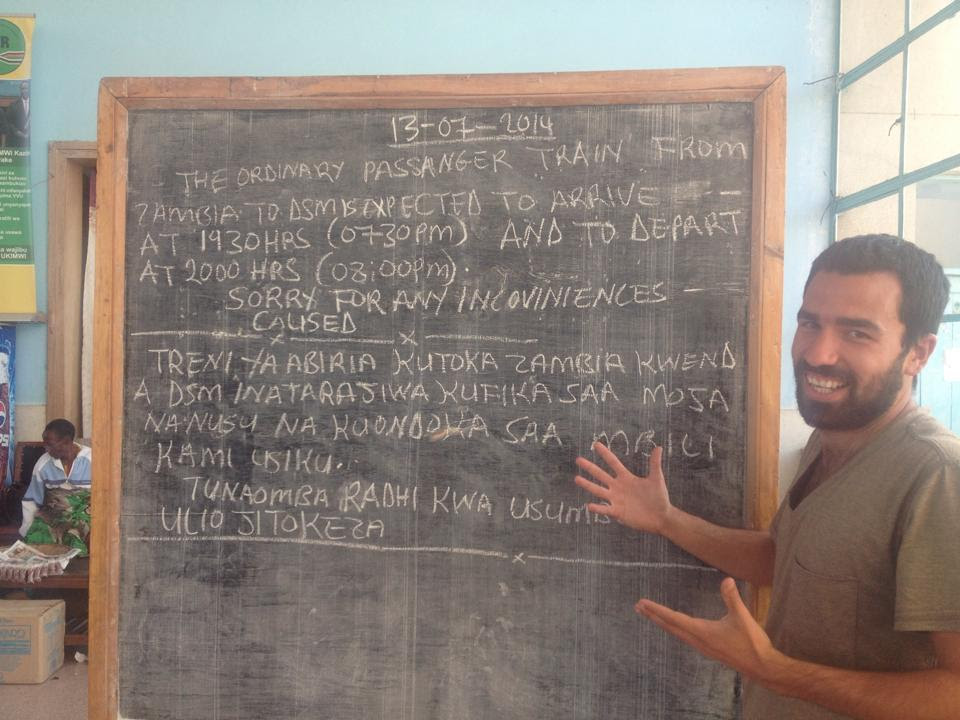 13-07-2014
THE ORDINARY PASSANGER TRAIN FROM
ZAMBIA TO DSM IS EXPECTED TO ARRIVE --
AT 1930HRS (0730pm) AND TO DEPART
AT 2000 HRS (08:00pm).
SORRY FOR ANY INCOVINIENCES -
CAUSED
x x
TRENI YA ABIRIA KUTOKA ZAMBIA KWEND
A DSM INATARAJIWA KUFIKA SAA MOJA
NA NUSU NA KUONDOKA SAA MBILI
KAMI USIKU..
TUNAOMBA RADHI KWA USUMB
ULIO JITOKEZA
x
R
UKIMWI